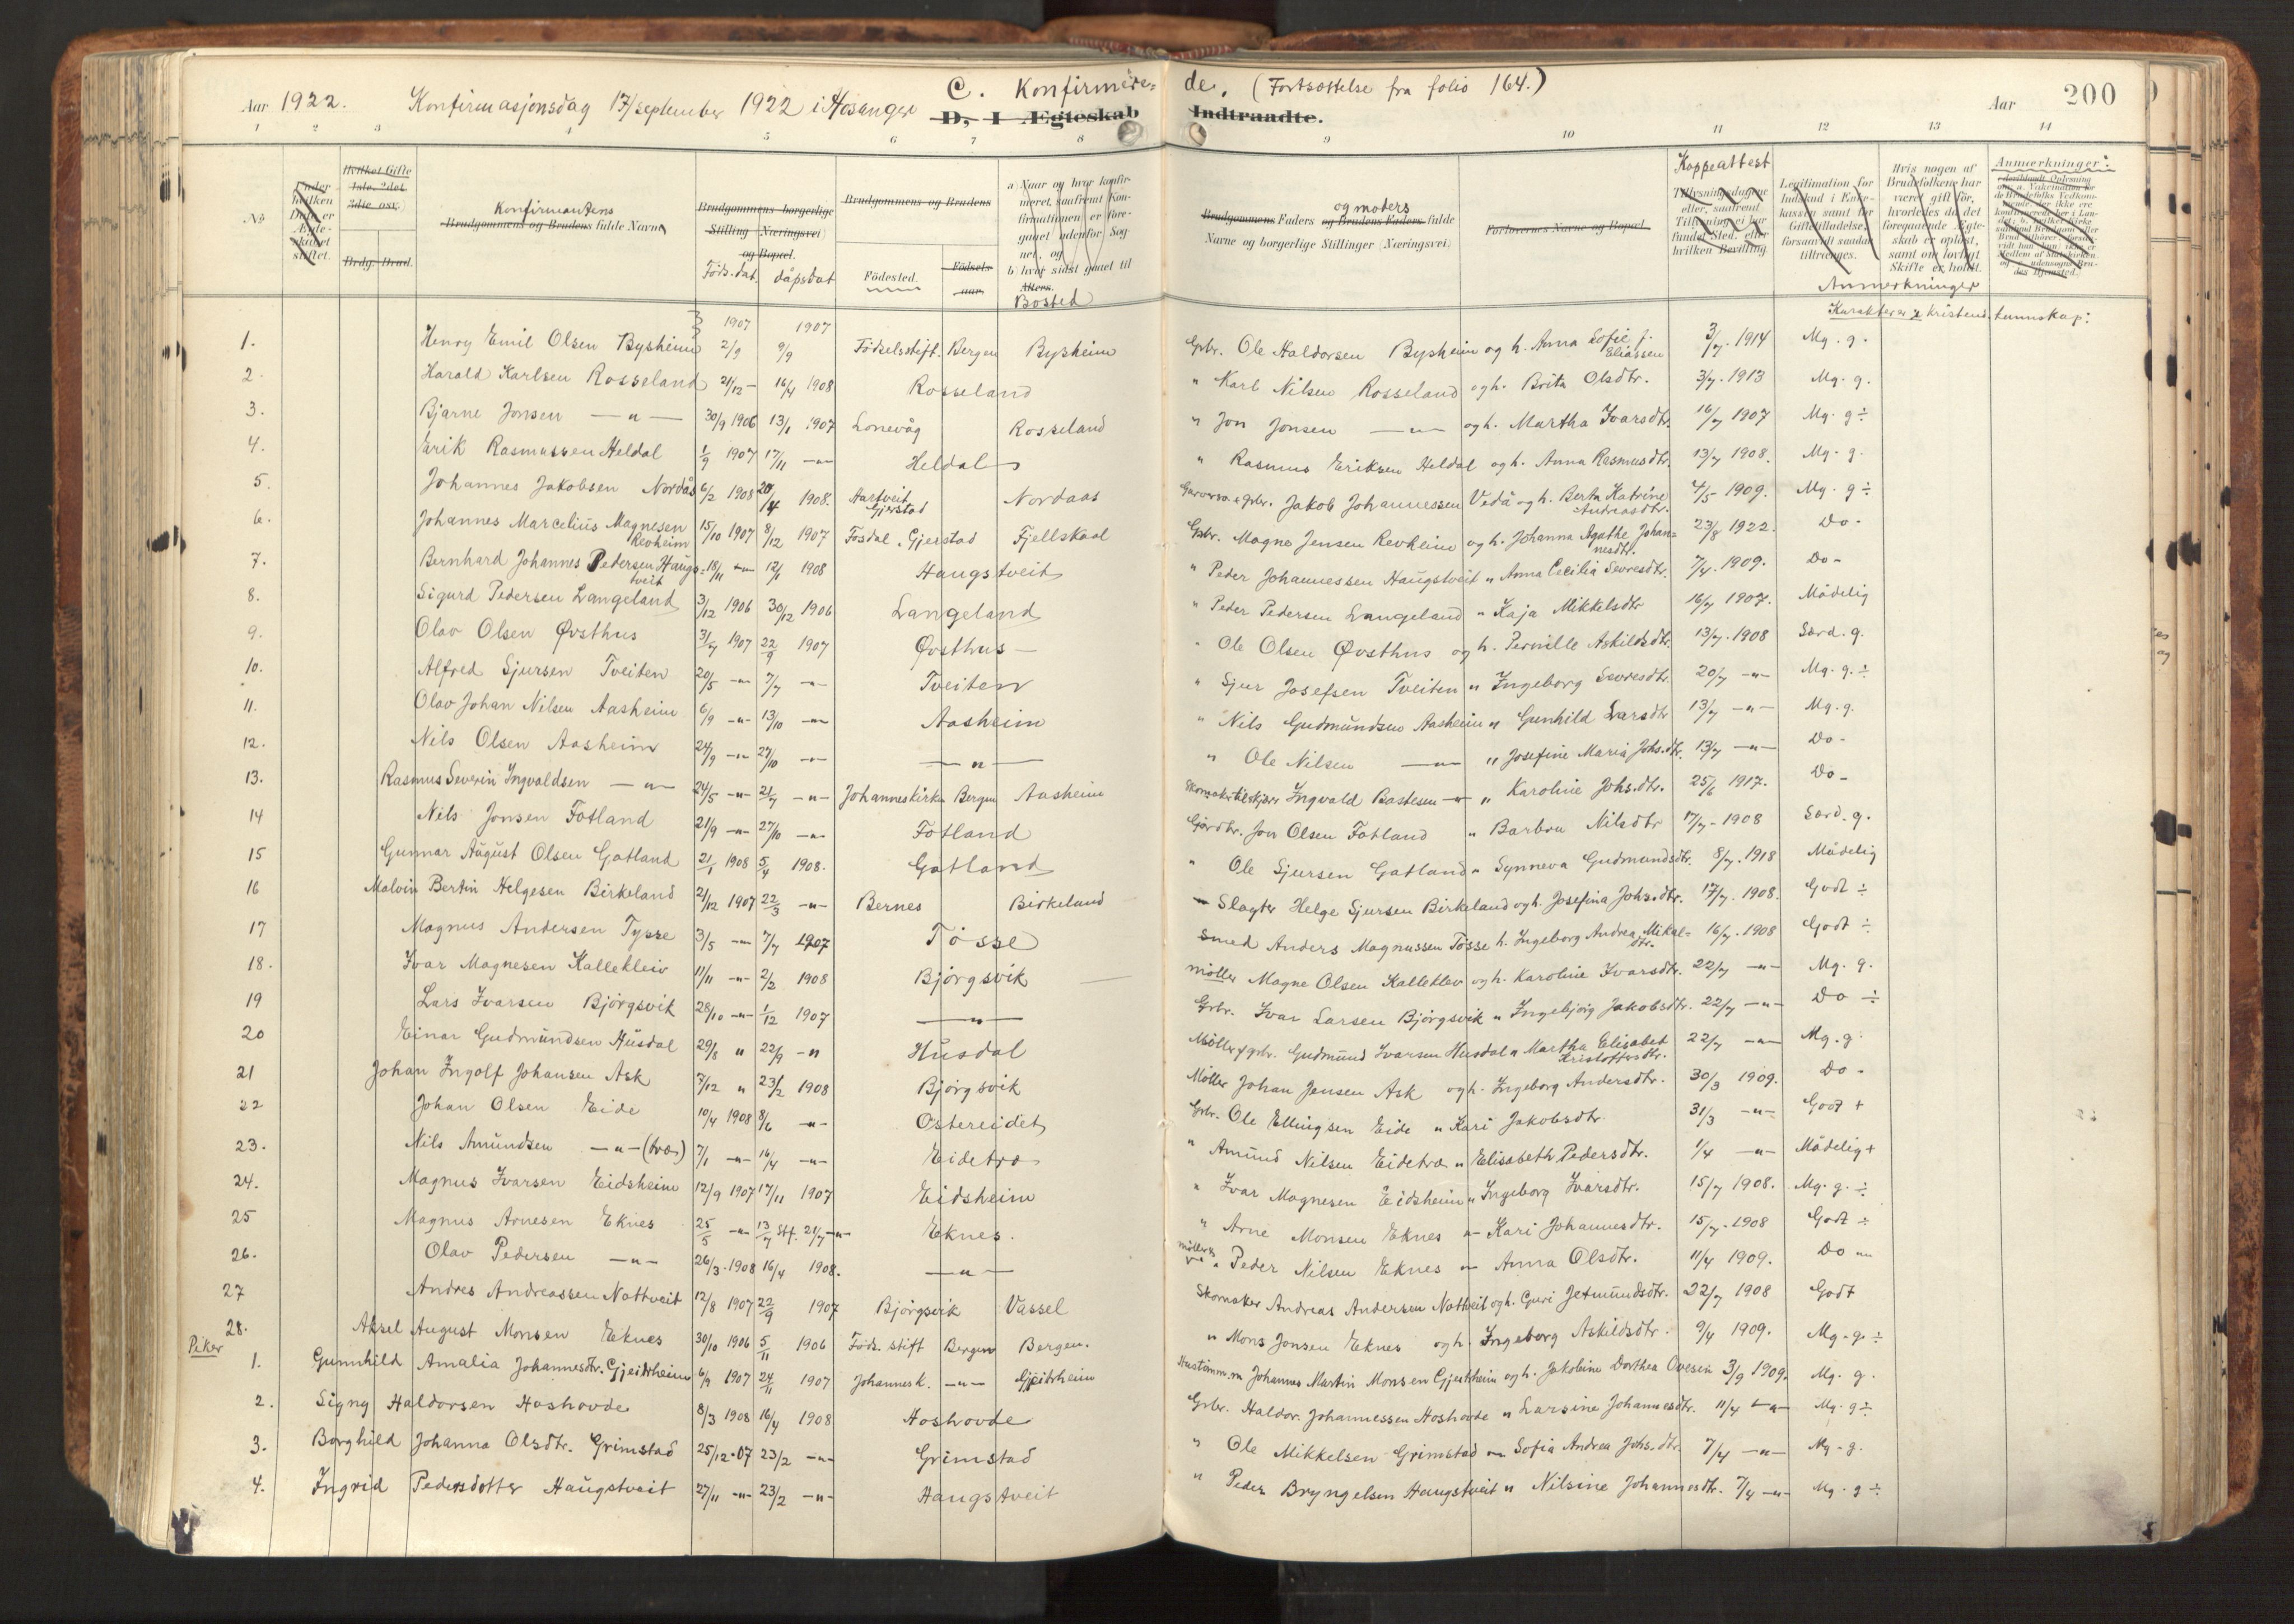 Aar 1922. Konfirmasjonsdag 17/september 1922 i Hosanger C. Konfirmere=
de. (Fortsættelse fra folio 164.) Aar 200
D, I Ægteskab Indtraadte.
1 2 3 4 5 6 7 8 9 10 11 12 13 14
No Under hvilken Dato er Ægteskabet stiftet.
Hvilket Gifte 1ste, 2det, 3die osv. Brdg. Brud.
Konfirmantens
Brudgommens og Brudens fulde Navne
Brudgommens borgerlige Stilling (Næringsvei) og Bopæl.
Föds. dat. dåpsdat
Brudgommens og Brudens
Födested. Fødselsaar
a) Naar og hvor konfirmeret, saafremt Konfirmationen er foregaaet udenfor Sognet, og
b) hvor sidst gaaet til Alters.
Bosted
og moders
Brudgommens Faders og Brudens Faders fulde Navne og borgerlige Stillinger (Næringsvei).
Forlovernes Navne og Bopæl.
Koppeattest
Tillysningsdagene eller, saafremt Tillysning ei har fundet Sted, efter hvilken Bevilling.
Legitimation for Indskud i Enkekassen samt for Giftetilladelse, forsaavidt saadan tiltrænges.
Hvis nogen af Brudefolkene har været gift før, hvorledes da det foregaaende Ægteskab er opløst, samt om lovligt Skifte er holdt.
Anmerkninger:
Anmerkninger
Karakterer i kristend. kunnskap:
1. Henry Emil Olsen Bysheim 1907 2/9 1907 9/9 Födselsstift. Bergen Bysheim Gbr. Ole Haldorsen Bysheim og h. Anna Sofie f. Eliassen 3/7. 1914 Mg. g.
2. Harald Karlsen Rosseland 21/12 - 16/4 1908 Rosseland " Karl Nilsen Rosseland og h. Brita Olsdtr. 3/7. 1913 Mg. g.
3. Bjarne Jonsen —"— 30/9 1906 13/1 1907 Lonevåg Rosseland " Jon Jonsen —"— og h. Martha Ivarsdtr. 16/7 1907 Mg. g ÷
4. Erik Rasmussen Heldal 1/9 1907 17/11 —"— Heldal " Rasmus Eriksen Heldal og h. Anna Rasmusdtr. 13/7 1908. Mg. g.
5. Johannes Jakobsen Nordås 6/2 1908 20/4 1908. Hartveit Gjerstad Nordaas Jakob Johannessen Vedå og h. Berta Katrine Andreasdtr. 4/5 1909. Mg. g ÷
6. Johannes Marcelius Magnesen Revheim 15/10 1907 8/12 1907 Fosdal, Gjerstad Fjellskaal Gbr. Magne Jensen Revheim og h. Johanna Agathe Johannesdtr. 23/8 1922. Do -
7. Bernhard Johannes Pedersen Haugstveit 18/11 —"— 12/1 1908 Haugstveit " Peder Johannessen Haugstveit " Anna Cecilia Sevresdtr. 7/4. 1909. Do -
8. Sigurd Pedersen Langeland 3/12 1906 30/12 1906 Langeland " Peder Pedersen Langeland " Kaja Mikkelsdtr 16/7 1907. Mådelig
9. Olav Olsen Øvsthus 3/7 1907 22/9 1907 Øvsthus " Ole Olsen Øvsthus og h. Pernille Askildsdtr. 13/7. 1908 Særd. g.
10. Alfred Sjursen Tveiten 20/5 —"— 7/7 —"— Tveiten " Sjur Josefsen Tveiten " Ingeborg Sevresdtr. 20/7 —"— Mg. g. ÷
11. Olav Johan Nilsen Aasheim 6/9 —"— 13/10 —"— Aasheim " Nils Gudmundsen Aasheim " Gunhild Larsdtr 13/7 —"— Mg. g.
12. Nils Olsen Aasheim 24/9 —"— 27/10 —"— —"— " Ole Nilsen —"— " Josefine Maria Johs.dtr. 13/7 —"— Do -
13. Rasmus Severin Ingvaldsen —"— 24/5 —"— 21/7 —"— Johanneskirke Bergen Aasheim Ingvald Bastesen —"— " Karoline Johs.dtr. 25/6 1917. Do -
14 Nils Jonsen Fotland 21/9 —"— 27/10 —"— Fotland Gårdbr. Jon Olsen Fotland " Barbra Nilsdtr 17/7 - 1908 Særd. g.
15 Gunnar August Olsen Gatland 21/1 1908 5/4 1908. Gatland " Ole Sjursen Gatland " Synneva Gudmundsdtr. 8/7. 1918 Mådelig
16 Malvin Bertin Helgesen Birkeland 21/12 1907 22/3 —"— Bernes Birkeland Slagter Helge Sjursen Birkeland og h. Josefina Johs.dtr. 17/7. 1908. Godt ÷
17 Magnus Andersen Tysse 3/5 —"— 7/7 1907 Tösse Smed Anders Magnussen Tösse h. Ingeborg Andrea Mikal=dtr. 16/7. 1908 Godt ÷
18. Ivar Magnesen Kallekleiv 11/11 —"— 2/2 1908 Björgsvik möller Magne Olsen Kalleklev og h. Karoline Ivarsdtr. 22/7 —"— Mg. g.
19 Lars Ivarsen Björgsvik 28/10 —"— 1/12 1907 —"— Gbr. Ivar Larsen Björgsvik " Ingebjörg Jakobsdtr. 22/7 —"— Do ÷
20 Einar Gudmundsen Husdal 29/8 " 22/9 —" Husdal Möller, gbr. Gudmund Ivarsen Husdal " Martha Elisabet Kristoffersdtr. 22/7 —"— Mg. g
21 Johan Ingolf Johansen Ask 7/12 " 23/2 1908 Björgsvik Möller Johan Jensen Ask og h. Ingeborg Andersdtr. 30/3 1909. Do -
22 Johan Olsen Eide 10/4 1908 8/6 —"— Ostereidet Gbr. Ole Ellingsen Eide " Kari Jakobsdtr 31/3 —"— Godt +
23. Nils Amundsen —"— (træ) 7/1 —"— 16/4 —"— Eidetræ " Amund Nilsen Eidetræ " Elisabeth Pedersdtr. 1/4 —"— Mådelig +
24. Magnus Ivarsen Eidsheim 12/9 1907 17/11 1907 Eidsheim " Ivar Magnesen Eidsheim " Ingeborg Ivarsdtr. 15/7 1908. Mg. g. ÷
25 Magnus Arnesen Eknes 25/5 —"— 13/7 Stf. 21/7 —"— Eknes. " Arne Monsen Eknes " Kari Johannesdtr. 15/7. 1908 Godt ÷
26. Olav Pedersen —"— 26/3. 1908 16/4 1908. —"— Peder Nilsen Eknes " Anna Olsdtr. 11/4 1909. Do —
27 Andres Andreassen Nottveit 12/8 1907 22/9 1907 Björgsvik Vassel Skomaker Andreas Andersen Notveit og h. Guri Jetmundsdtr. 22/7 1908 Godt
28. Aksel August Monsen Eknes 30/10 1906 5/11 1906 Föds. stift Bergen Bergen. " Mons Jonsen Eknes og h. Ingeborg Askildsdtr. 9/4 1909. Mg. g. ÷
Piker
1. Gunnhild Amalia Johannesdtr. Gjeitrheim 6/9 1907 24/11 1907 Johannesk. —"— Gjeitrheim Hustömm.m Johannes Martin Monsen Gjeitrheim og h. Jakobine Dorthea Ovesen 3/9 1909. Mg. g.
2. Signy Haldorsen Hoshovde 8/3 1908 16/4 1908 Hoshovde Grbr. Haldor Johannessen Hoshovde " Larsine Johannesdtr. 11/4 —"— Mg. g ÷
3. Borghild Johanna Olsdtr. Grimstad 25/12. 07 23/2 —"— Grimstad " Ole Mikkelsen Grimstad " Sofia Andrea Johs.dtr. 7/4 —"— Mg. g.
4. Ingrid Pedersdotter Haugstveit 27/11 —"— 23/2 —"— Haugstveit " Peder Bryngelsen Haugstveit " Nilsine Johannesdtr. 7/4 —"— Mg. g ÷